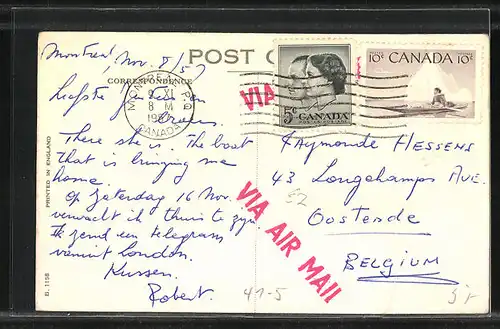 Montreal Nov. 8/57
POST
CORRESPONDENCE
MONTREAL P.Q.
9 XI
8 M
CANADA
Liefste en
There she is. The boat
that is bringing me
home.
Op Zaterdag 16 Nov.
verwacht ik thuis te zijn.
Ik zend een telegram
vanuit London.
Kussen.
Robert.
PRINTED IN ENGLAND
D. 1158
5¢
CANADA
POSTES POSTAGE
10¢ CANADA 10¢
VIA
VIA AIR MAIL
Raymonde HESSENS
43 Longchamps Ave.
Oostende
BELGIUM
47-5